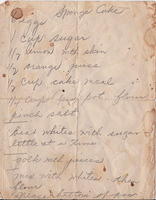 Sponge Cake
Eggs
1 cup sugar
1/2 lemon with skin
1/2 orange juice
1/2 cup cake meal
1/2 cup pot. flour
pinch salt
beat whites with sugar
little at a time
yolk with juices
mix with whites then
flour
bottom of pan